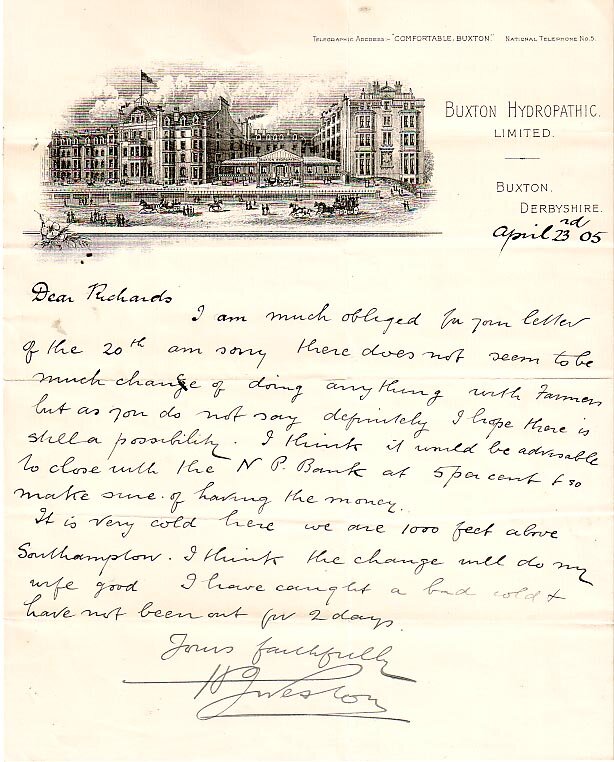 Telegraphic Address:- "COMFORTABLE, BUXTON." National Telephone No. 5.
BUXTON HYDROPATHIC.
LIMITED.
BUXTON.
DERBYSHIRE.
April 23rd 05
Dear Richards
I am much obliged for your letter
of the 20th am sorry there does not seem to be
much change of doing anything with Farmers
but as you do not say definitely I hope there is
still a possibility. I think it would be advisable
to close with the N P. Bank at 5 per cent & so
make sure of having the money.
It is very cold here we are 1000 feet above
Southampton. I think the change will do my
wife good I have caught a bad cold &
have not been out for 2 days.
Yours faithfully
Weston